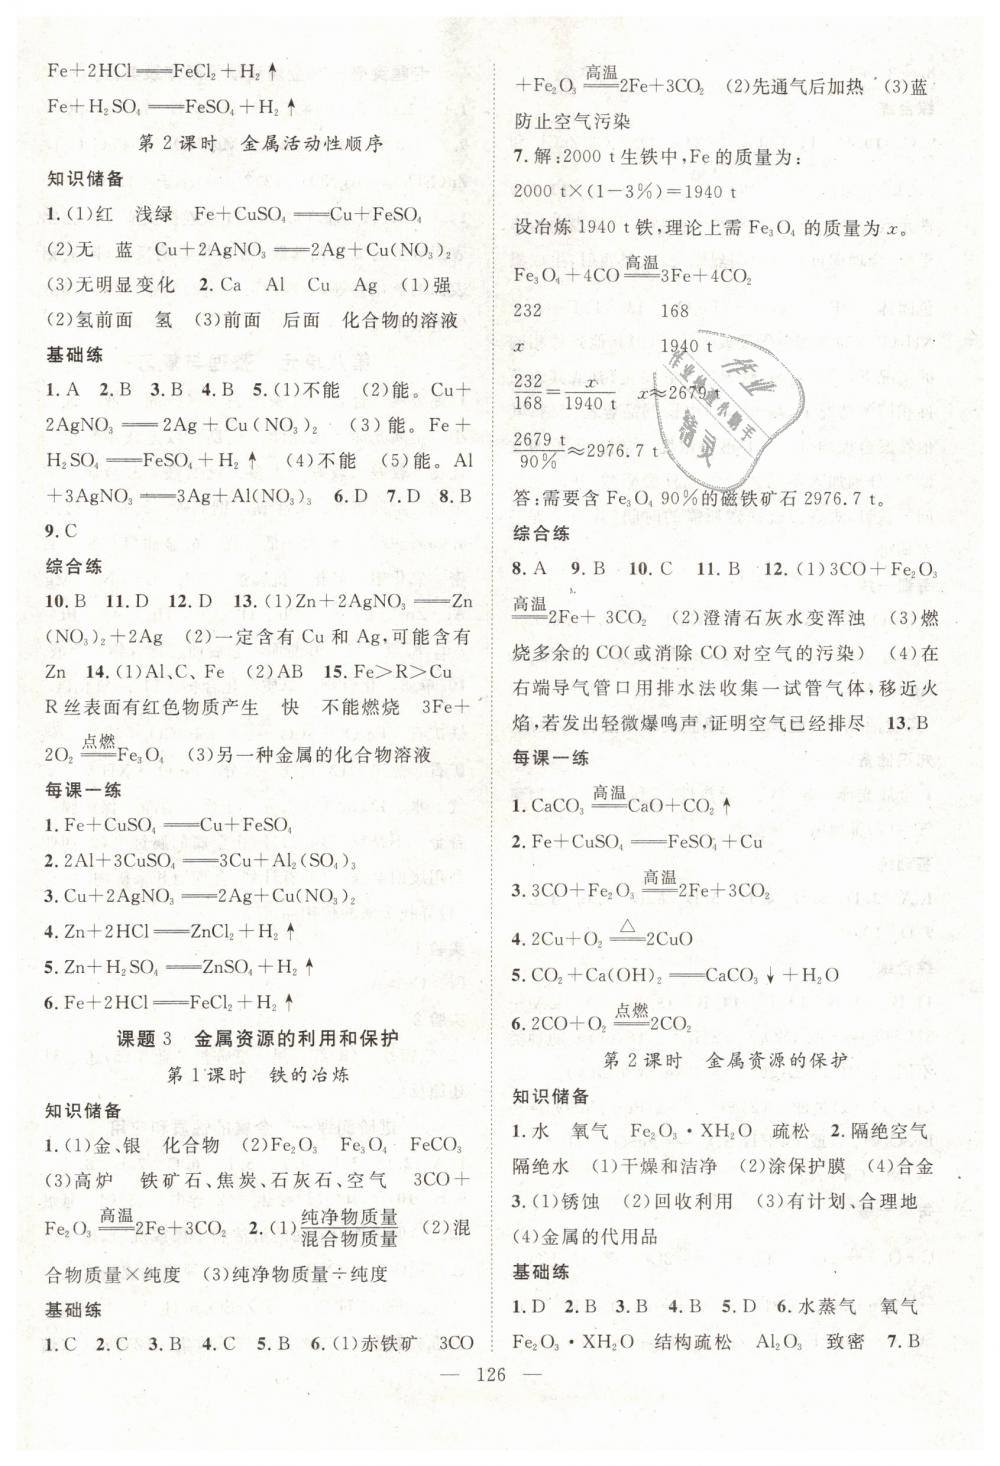 Fe+2HCl══FeCl₂+H₂↑
Fe+H₂SO₄══FeSO₄+H₂↑
第2课时 金属活动性顺序
知识储备
1.(1)红 浅绿 Fe+CuSO₄══Cu+FeSO₄
(2)无 蓝 Cu+2AgNO₃══2Ag+Cu(NO₃)₂
(3)无明显变化 2.Ca Al Cu Ag (1)强
(2)氢前面 氢 (3)前面 后面 化合物的溶液
基础练
1.A 2.B 3.B 4.B 5.(1)不能 (2)能。Cu+
2AgNO₃══2Ag+Cu(NO₃)₂ (3)能。Fe+
H₂SO₄══FeSO₄+H₂↑ (4)不能 (5)能。Al
+3AgNO₃══3Ag+Al(NO₃)₃ 6.D 7.D 8.B
9.C
综合练
10.B 11.D 12.D 13.(1)Zn+2AgNO₃══Zn
(NO₃)₂+2Ag (2)一定含有Cu和Ag,可能含有
Zn 14.(1)Al、C、Fe (2)AB 15.Fe>R>Cu
R丝表面有红色物质产生 快 不能燃烧 3Fe+
2O₂ 点燃══Fe₃O₄ (3)另一种金属的化合物溶液
每课一练
1.Fe+CuSO₄══Cu+FeSO₄
2.2Al+3CuSO₄══3Cu+Al₂(SO₄)₃
3.Cu+2AgNO₃══2Ag+Cu(NO₃)₂
4.Zn+2HCl══ZnCl₂+H₂↑
5.Zn+H₂SO₄══ZnSO₄+H₂↑
6.Fe+2HCl══FeCl₂+H₂↑
课题3 金属资源的利用和保护
第1课时 铁的冶炼
知识储备
1.(1)金、银 化合物 (2)Fe₂O₃ Fe₃O₄ FeCO₃
(3)高炉 铁矿石、焦炭、石灰石、空气 3CO+
Fe₂O₃ 高温══2Fe+3CO₂ 2.(1)纯净物质量/混合物质量 (2)混
合物质量×纯度 (3)纯净物质量÷纯度
基础练
1.C 2.C 3.B 4.C 5.B 6.(1)赤铁矿 3CO
+Fe₂O₃ 高温══2Fe+3CO₂ (2)先通气后加热 (3)蓝
防止空气污染
7.解:2000 t生铁中,Fe的质量为:
2000 t×(1-3%)=1940 t
设冶炼1940 t铁,理论上需Fe₃O₄的质量为x。
Fe₃O₄+4CO 高温══3Fe+4CO₂
232 168
x 1940 t
232/168=x/1940 t x≈2679 t
2679 t/90%≈2976.7 t
答:需要含Fe₃O₄ 90%的磁铁矿石2976.7 t。
综合练
8.A 9.B 10.C 11.B 12.(1)3CO+Fe₂O₃
高温══2Fe+3CO₂ (2)澄清石灰水变浑浊 (3)燃
烧多余的CO(或消除CO对空气的污染) (4)在
右端导气管口用排水法收集一试管气体,移近火
焰,若发出轻微爆鸣声,证明空气已经排尽 13.B
每课一练
1.CaCO₃ 高温══CaO+CO₂↑
2.Fe+CuSO₄══FeSO₄+Cu
3.3CO+Fe₂O₃ 高温══2Fe+3CO₂
4.2Cu+O₂ △══2CuO
5.CO₂+Ca(OH)₂══CaCO₃↓+H₂O
6.2CO+O₂ 点燃══2CO₂
第2课时 金属资源的保护
知识储备
1.水 氧气 Fe₂O₃·XH₂O 疏松 2.隔绝空气
隔绝水 (1)干燥和洁净 (2)涂保护膜 (4)合金
3.(1)锈蚀 (2)回收利用 (3)有计划、合理地
(4)金属的代用品
基础练
1.D 2.B 3.B 4.B 5.D 6.水蒸气 氧气
Fe₂O₃·XH₂O 结构疏松 Al₂O₃ 致密 7.B
— 126 —
作业
作业检查小助手
精灵